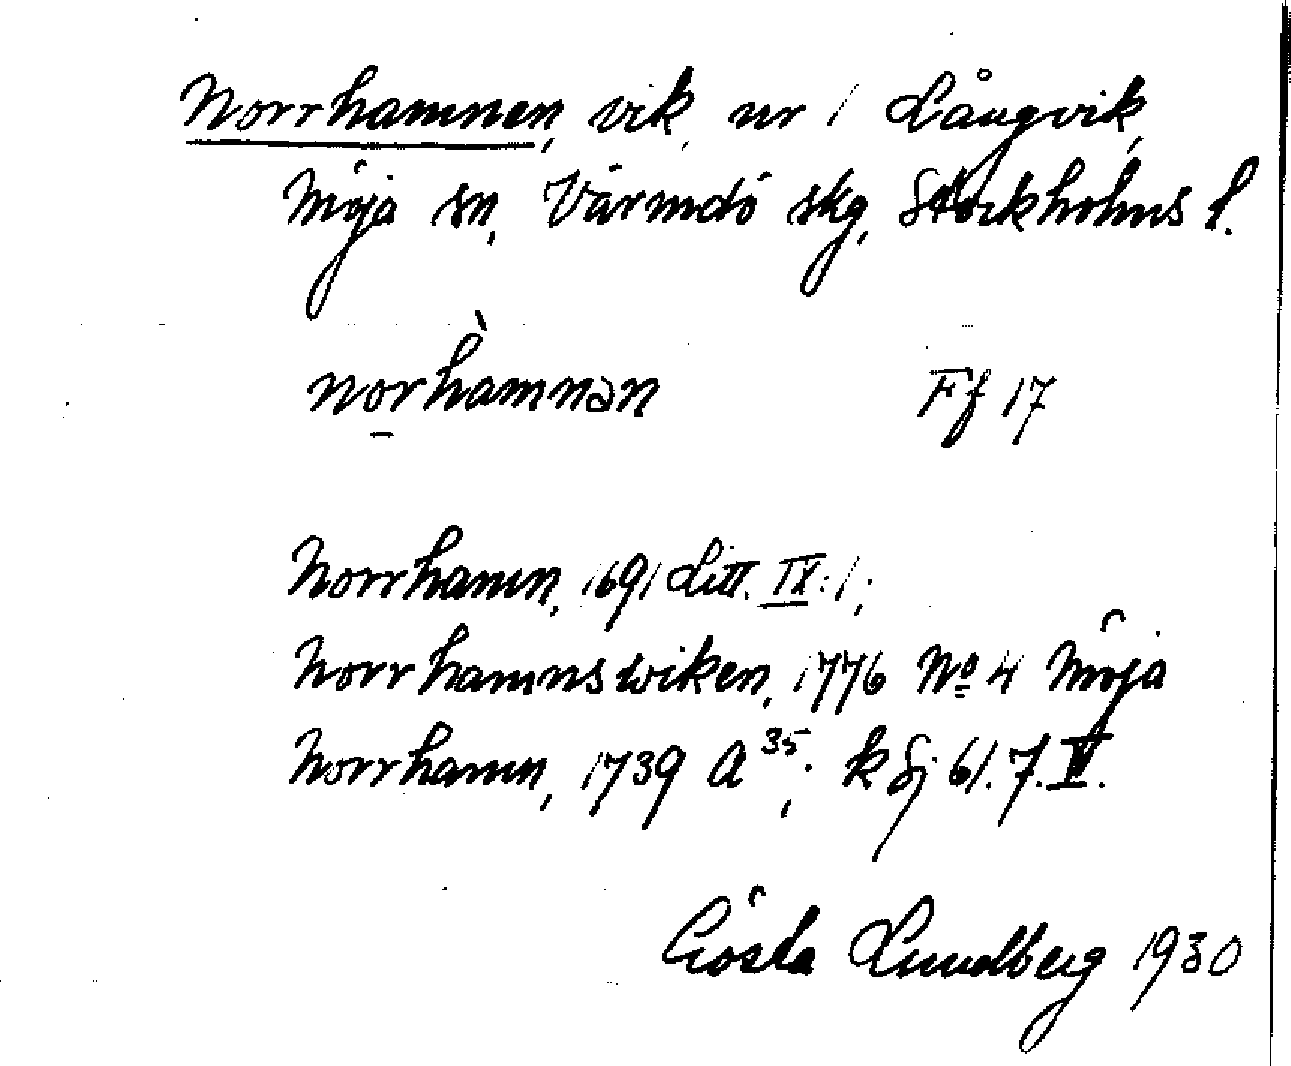 Norrhamnen, vik, nr 1 Långvik,
Möja sn, Värmdö skg, Stockholms l.
no̱rhàmnən Ff 17
Norrhamn, 1691 Litt. IX:1;
Norrhamnswiken, 1776 No 4 Möja
Norrhamn, 1739 A 35; k Sj 61.7.V.
Gösta Lundberg 1930